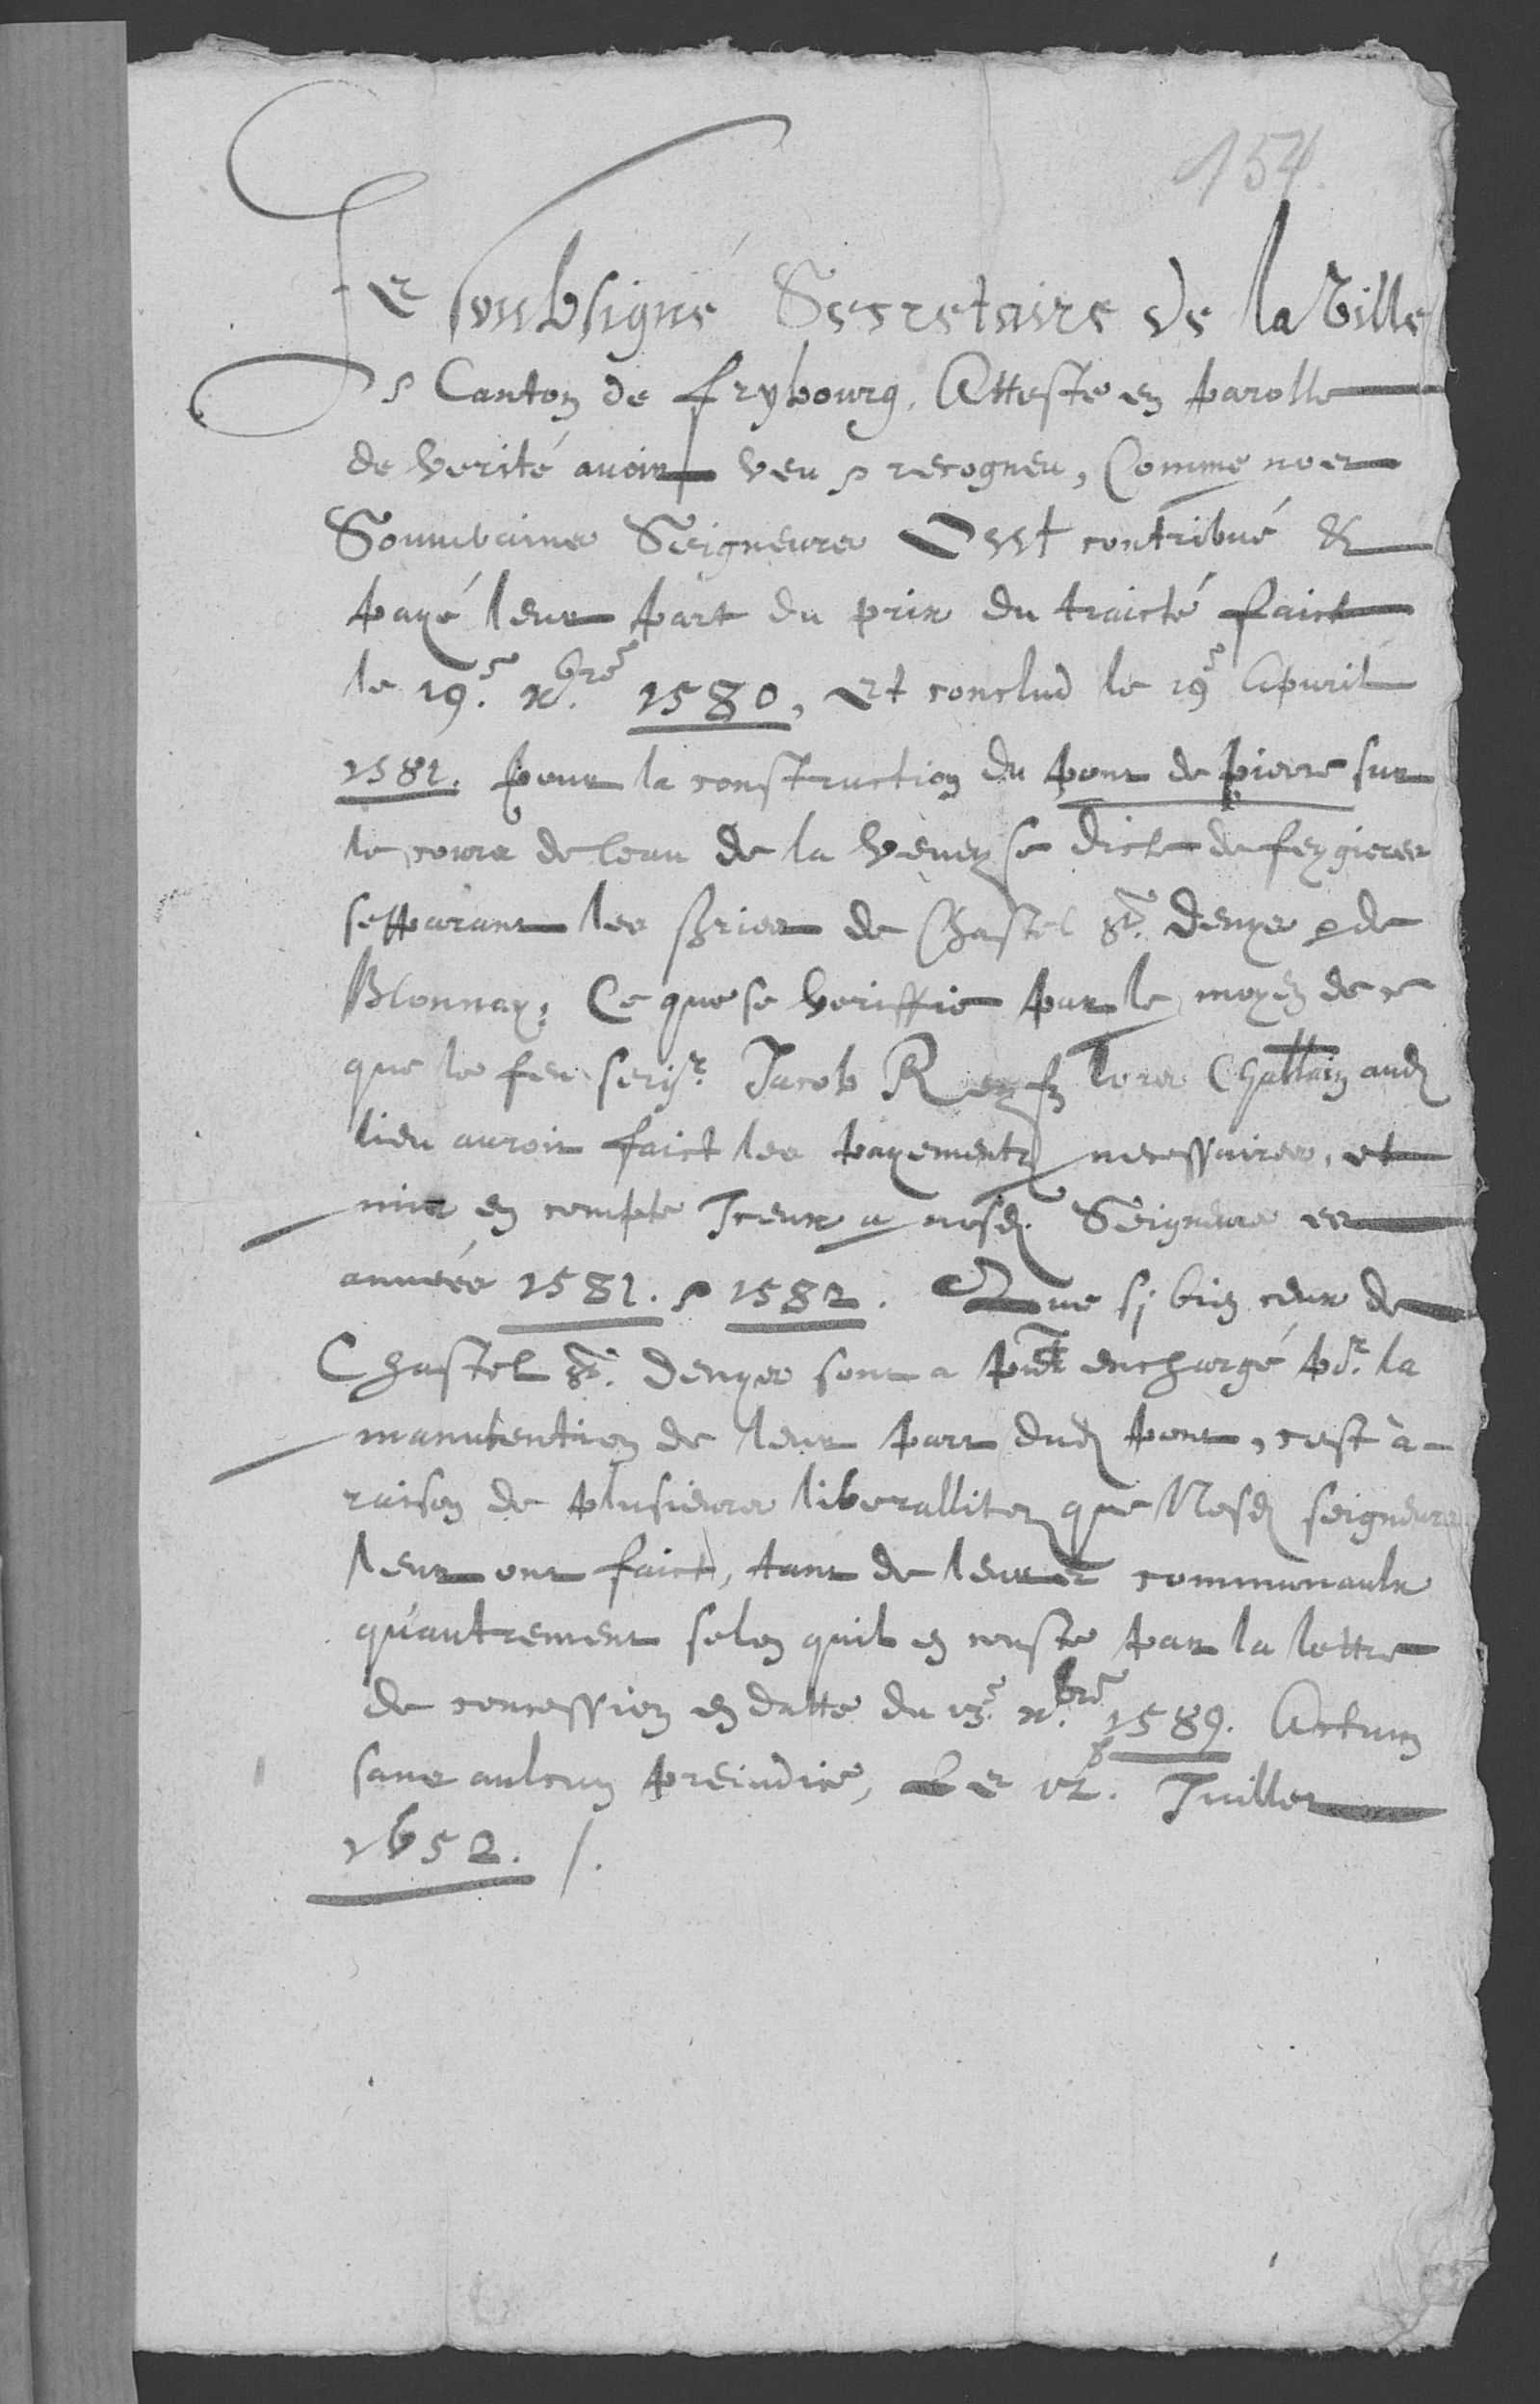 154.
Je soubsigné Secretaire de la Ville
& Canton de frybourg. Atteste en parolle
de verité avoir veu & recogneu, Comme nos
Souuerains Seigneurs Ont contribué &
payé leur part du prix du traicté faict
le 19.e x.bre 1580, et conclud le 19e Apuril
1581. pour la construction du pont de pierre sur
le cours de leau de la veueyse dicte de feygieres
sepparant les sgries de Chastel St. Denys & de
Blonnay: Ce que se veriffie par le moyen de ce
que le feu seigr. Jacob Reyff lors Chastlain aud
lieu auroit faict les payements necessaires, et
mis en compte Iceux a nosd. Seigneurs es
années 1581. & 1582. Que sy bien ceux de
Chastel St. Denys sont a pnt encharge pr. la
manutention de leur part dud pont, cest à
raison de plusieurs liberallitez que Nosd seigneurs
leur ont faict, tant de leurs communaulx
quautrement selon quil en conste par la lettre
de concession en datte du 13.e x.bre 1589. Actum
sans aulcun preiudice, Le 12. Juillet
1652. /.